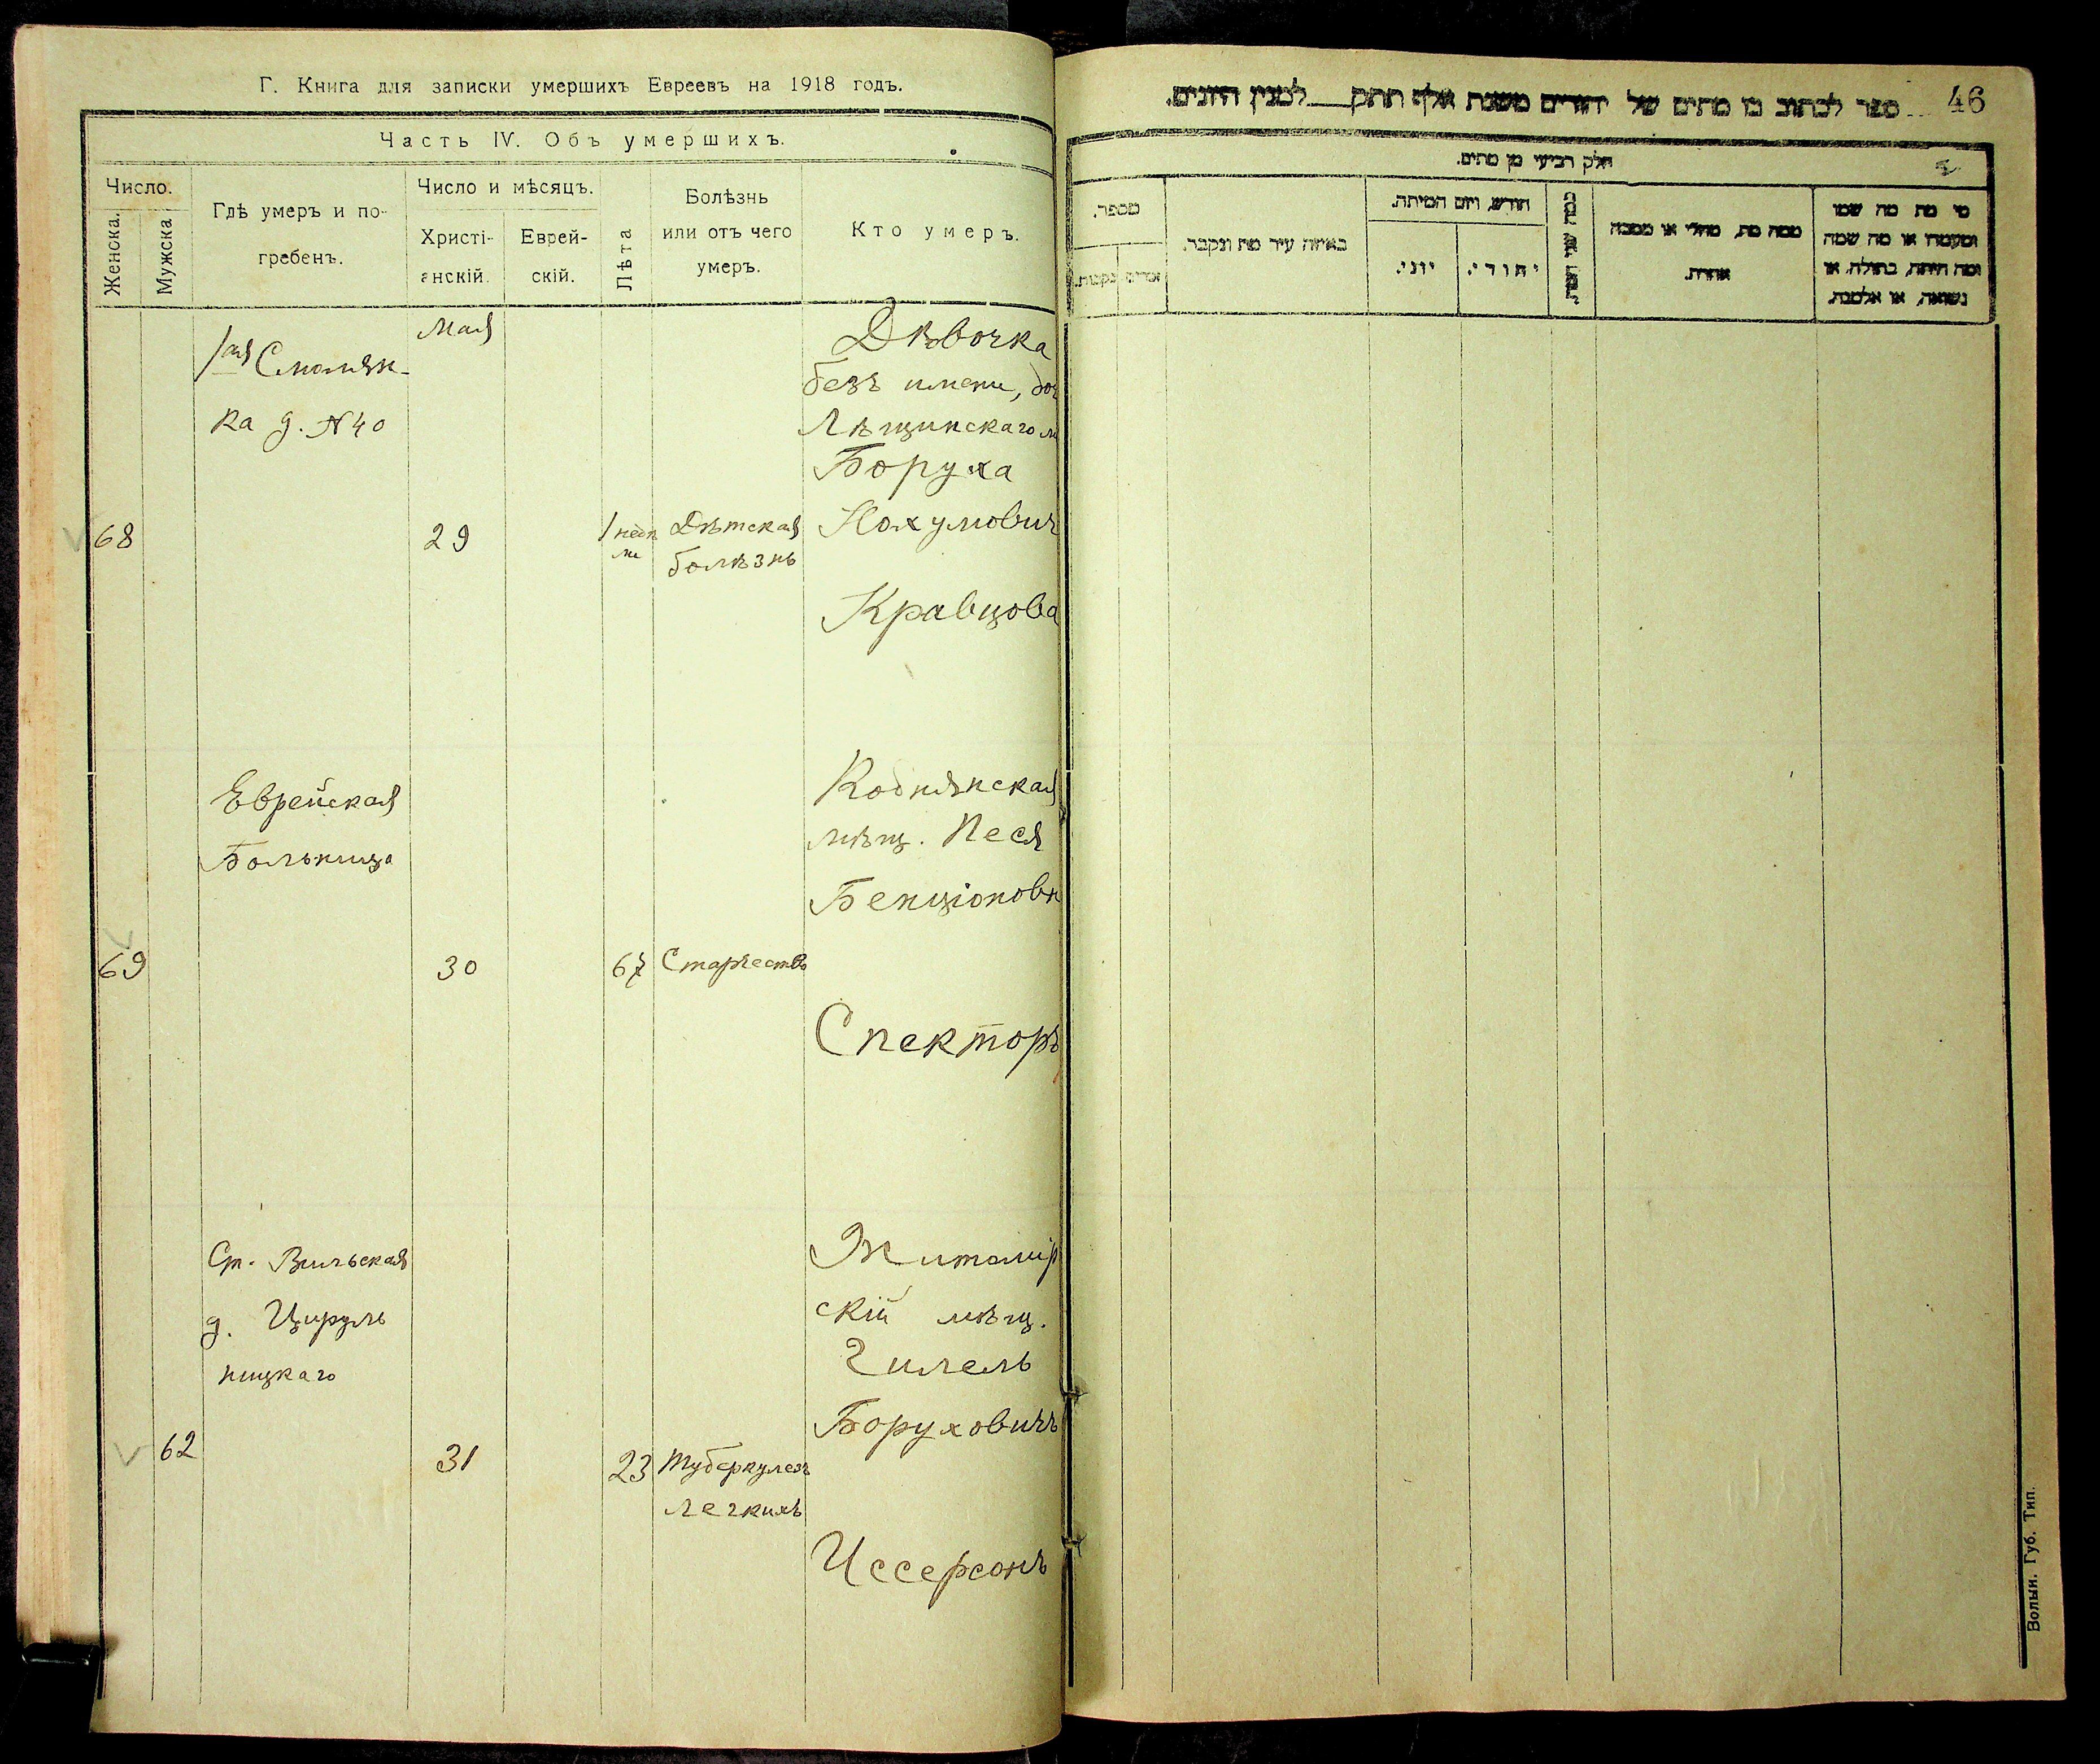 Г. Книга для записки умершихъ Евреевъ на 1918 годъ.
Часть IV. Объ умершихъ.
Число.
Женска.
Мужска
Гдѣ умеръ и по-
гребенъ.
Число и мѣсяцъ.
Христі-
анскій.
Еврей-
скій.
Лѣта
Болѣзнь
или отъ чего
умеръ.
Кто умеръ.
Мая
1ая Смолян-
ка д. №40
68
29
1 недѣ
ли
Дѣтская
болѣзнь
Дѣвочка
безъ имени, доч
Лѣщинскаго м
Боруха
Нохумович
Кравцова
Еврейская
Больница
69
30
67
Старчество
Коднянская
мѣщ. Песя
Бенціоновн
Спекторъ
Ст. Вильская
д. Цируль
ницкаго
62
31
23
Туберкулезъ
легкихъ
Житомир
скій мѣщ.
Гилель
Боруховичъ
Иссерсонъ
46
ספר לכתוב בו מתים של יהודים משנת אלף תתק___למנין היונים.
חלק רביעי מן מתים.
מי מת מה שמו
ומעמדו או מה שמה
ומה היתה, בתולה, או
נשואה, או אלמנה.
ממה מת, מחלי או מסבה
אחרת.
כמה שני חייו.
חודש, ויום המיתה.
יהודי.
יוני.
באיזה עיר מת ונקבר.
מספר.
זכרים
נקבות.
Волын. Губ. Тип.